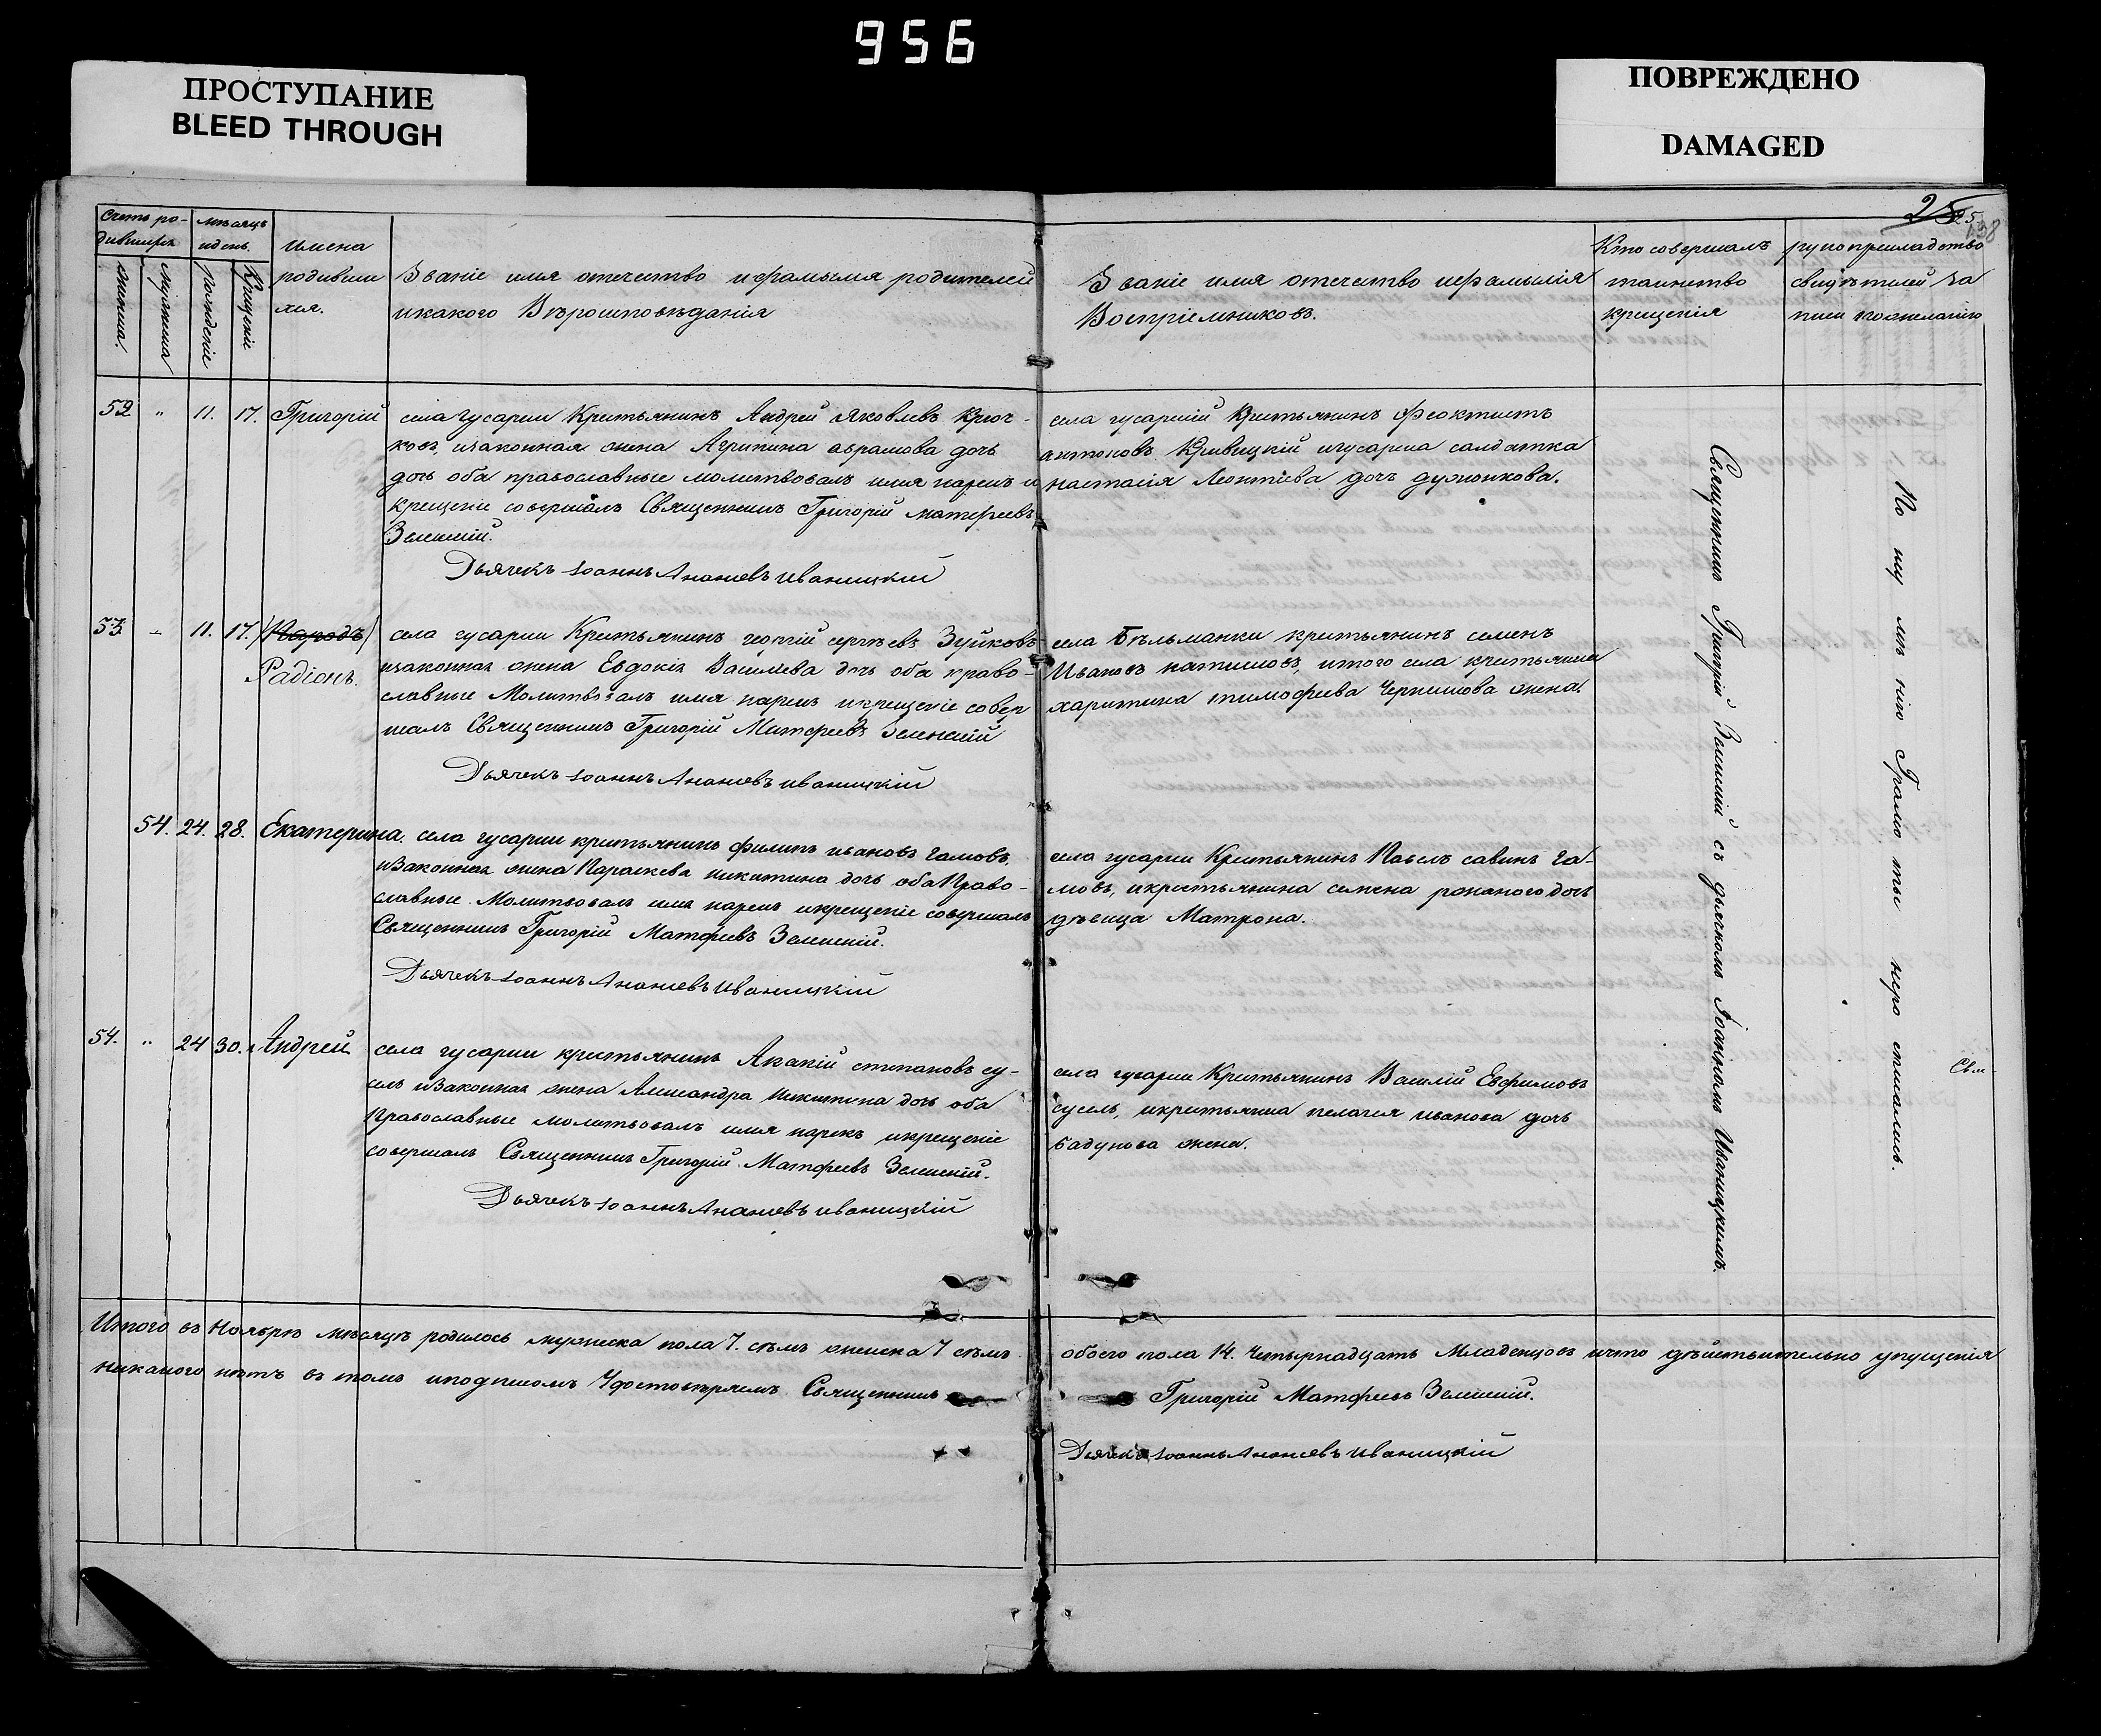 956
ПРОСТУПАНИЕ
BLEED THROUGH
ПОВРЕЖДЕНО
DAMAGED
25
25
138
Счетъ ро-
дившихъ
мѣсяцъ
и день.
Рожденіе
Крещеніе
имена
родивши
хся.
Званіе имя отечество и фамылія родителей
и какого Вѣроисповѣданія
Званіе имя отечество и фамылія
Воспріемниковъ.
Кто совершалъ
таинство
крещенія
рукоприкладство
свидѣтелей за
писи по желанію
52 " 11. 17. Григорій
села гусарки Крестьянинъ Андрей Яковлевъ Крюч-
ковъ, изаконная жена Агрипина аврамова дочь
дочь оба православные молитвовалъ имя нарекъ и
крещеніе совершалъ Священникъ Григорій матфеевъ
Зеленскій.
Дьячекъ Іоаннъ Ананіевъ Иваницкій
села гусаркій Крестьянинъ Феоктистъ
антоновъ Кривицкій игусарка салдатка
настасія Леонтіева дочь
53. - 11. 17. Народъ
Радіонъ.
села гусарки Крестьянинъ георгій сергѣевъ Зуйковъ
изаконная жена Евдокія Василіева дочь оба право-
славные Молитвовалъ имя нарекъ икрещеніе совер
шалъ Священникъ Григорій Матфеевъ Зеленскій
Дьячекъ Іоаннъ Ананіевъ Иваницкій
села Бѣльманки крестьянинъ семенъ
Ивановъ итого села крестьянка
харитина тимофеева Черникова жена.
54. 24. 28. Екатерина.
села гусарки крестьянинъ филипъ ивановъ Гамовъ,
иЗаконная жена Параскева никитина дочь оба Право-
славные Молитвовалъ имя нарекъ икрещеніе совершалъ
Священникъ Григорій Матфеевъ Зеленскій.
Дьячекъ Іоаннъ Ананіевъ Иваницкій
села гусарки Крестьянинъ Павелъ савинъ Га-
мовъ, икрестьянина семена дочь
дѣвица Матрона.
54. " 24 30. Андрей
села гусарки крестьянинъ Акакій степановъ су-
сль иЗаконная жена Александра Никитина дочь оба
Православные молитвовалъ имя нарекъ икрещеніе
совершалъ Священникъ Григорій Матфеевъ Зеленскій.
Дьячекъ Іоаннъ Ананіевъ Иваницкій
села гусарки Крестьянинъ Василій Евфимовъ
сусель, икрестьянка пелагея иванова дочь
бадунова жена.
Священникъ Григорій Зеленскій съ дьячкомъ Іоанномъ Иваницкимъ.
По неумѣнію Грамоты неросписались.
Свя-
Итого въ Ноябрѣ мѣсяцѣ родилось мужеска пола 7. сѣмъ женска 7 сѣмъ
обоего пола 14. Четырнадцать Младенцовъ ичто дѣйствительно упущенія
никакого нѣтъ въ томъ иподписомъ Удостовѣряемъ Священникъ
Григорій Матфеевъ Зеленскій.
Дьячекъ Іоаннъ Ананіевъ Иваницкій